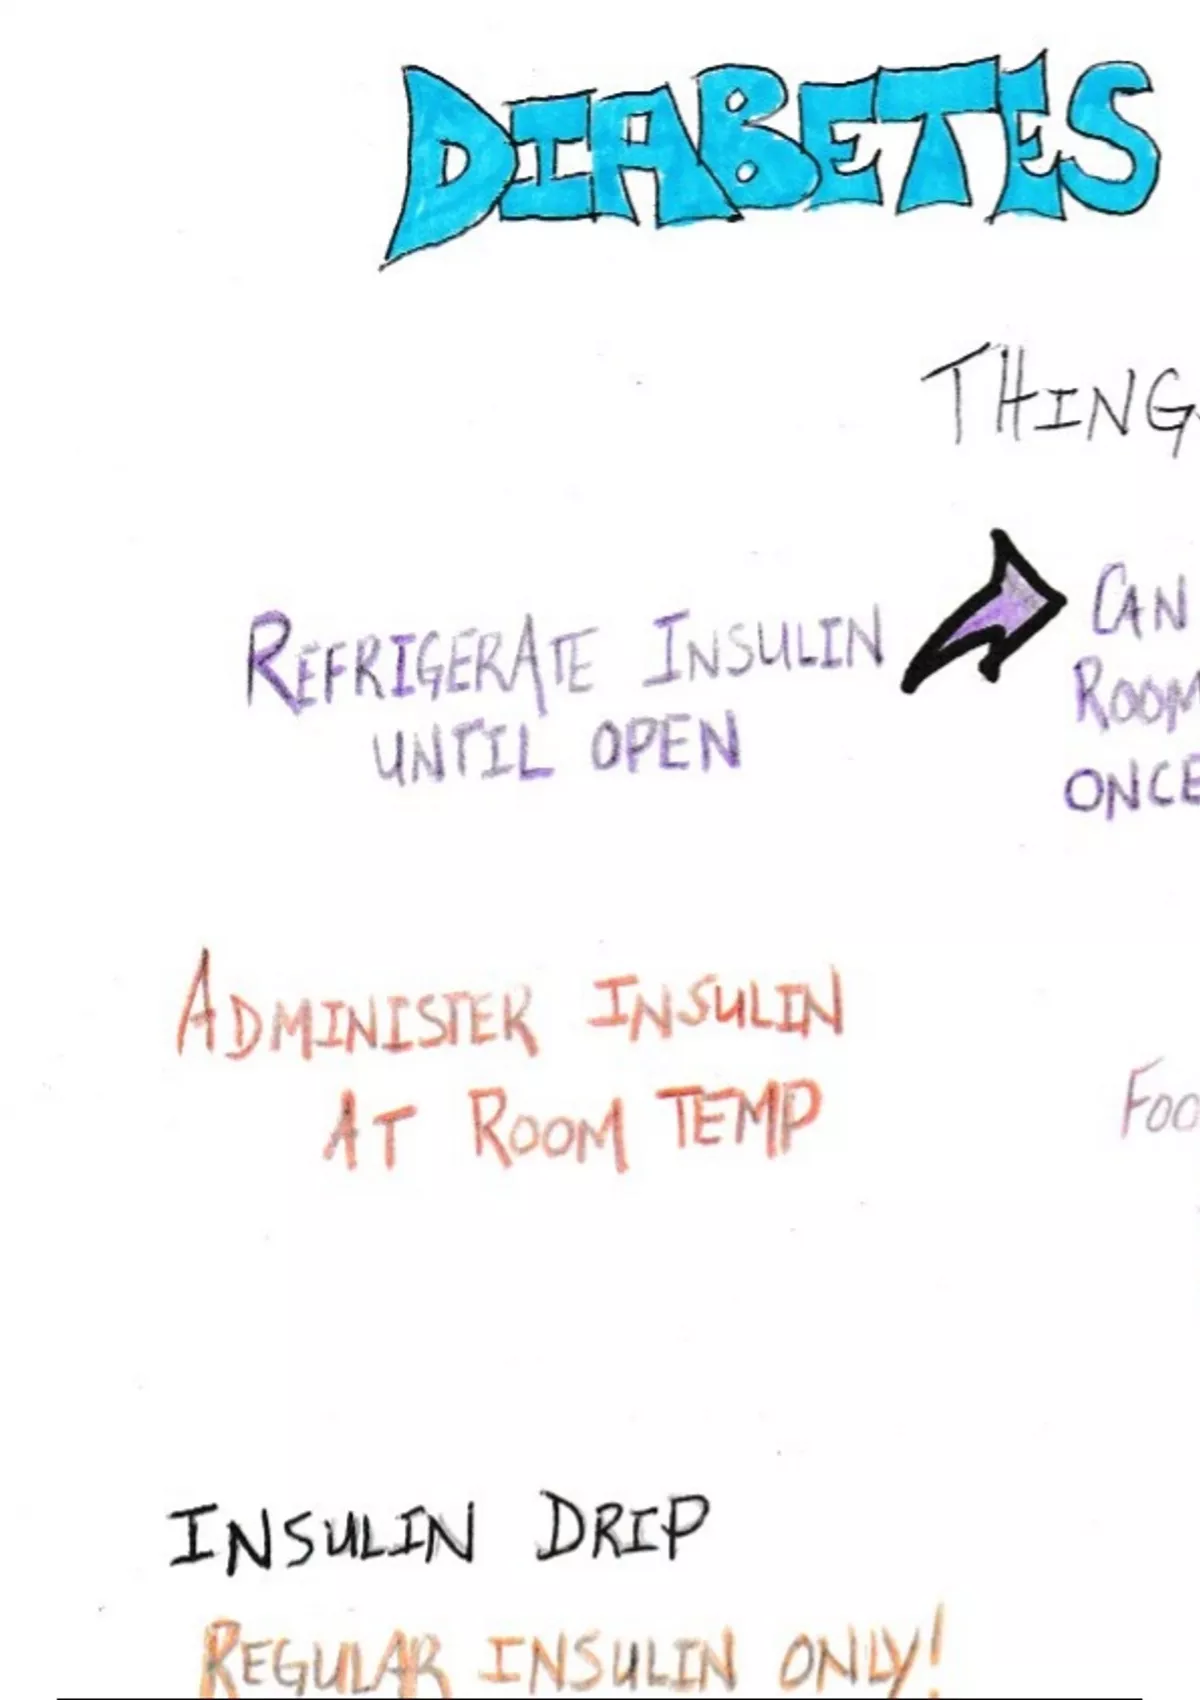 DIABETES
THINGS
REFRIGERATE INSULIN
UNTIL OPEN
CAN
ROOM
ONCE
ADMINISTER INSULIN
AT ROOM TEMP
FOO
INSULIN DRIP
REGULAR INSULIN ONLY!